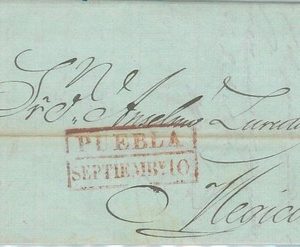 Sr. Dn. Anselmo Zurut
PUEBLA
SEPTIEMBE 10
Megico